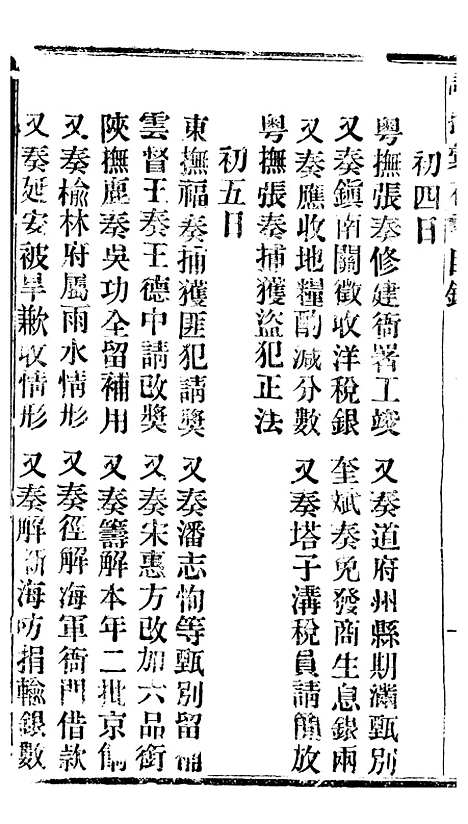 目錄
初四日
粵撫張奏修建衙署工竣　又奏道府州縣期滿甄別
又奏鎮南關徵收洋稅銀　奎斌奏免發商生息銀兩
又奏應收地糧酌減分數　又奏塔子溝稅員請簡放
粵撫張奏捕獲盜犯正法
初五日
東撫福奏捕獲匪犯請獎　又奏潘志恂等甄別留補
雲督王奏王德中請改獎　又奏宋惠方改加六品銜
陝撫鹿奏吳功全留補用　又奏籌解本年二批京餉
又奏榆林府屬雨水情形　又奏徑解海軍衙門借款
又奏延安被旱歉收情形　又奏解新海防捐輸銀數